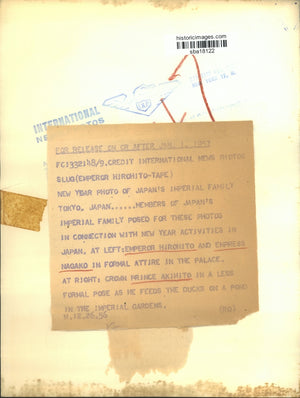 historicimages.com
sba18122
INTERNATIONAL
FOR RELEASE ON OR AFTER JAN. 1, 1957
FC1332148/9.CREDIT INTERNATIONAL NEWS PHOTOS
SLUG(EMPEROR HIROHITO-TAPE)
NEW YEAR PHOTO OF JAPAN'S IMPERIAL FAMILY
TOKYO, JAPAN......MEMBERS OF JAPAN'S
IMPERIAL FAMILY POSED FOR THESE PHOTOS
IN CONNECTION WITH NEW YEAR ACTIVITIES IN
JAPAN. AT LEFT:EMPEROR HIROHITO AND EMPRESS
NAGAKO IN FORMAL ATTIRE IN THE PALACE.
AT RIGHT: CROWN PRINCE AKIHITO IN A LESS
FORMAL POSE AS HE FEEDS THE DUCKS ON A POND
IN THE IMPERIAL GARDENS. (RO)
M.12.26.56